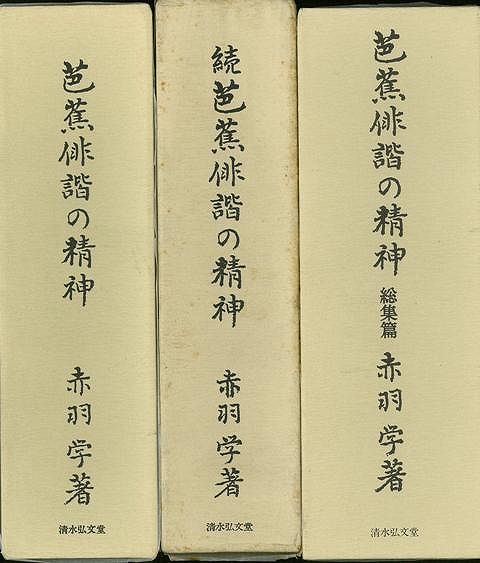 芭蕉俳諧の精神
赤羽学著
清水弘文堂
続芭蕉俳諧の精神
赤羽学著
清水弘文堂
芭蕉俳諧の精神 総集篇
赤羽学著
清水弘文堂